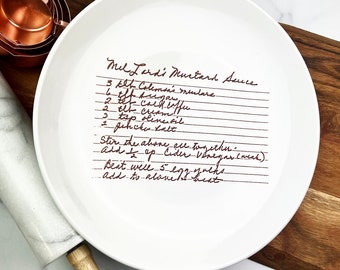 Mel Lord's Mustard Sauce
3 tbl Colman's mustard
6 tbl sugar
2 tbl Cold Coffee
2 tbl Cream
2 tsp olive oil
2 pinches Salt
Stir the above all together.
Add ½ cp Cider Vinegar (weak)
Beat well 5 egg yolks
add to above & heat